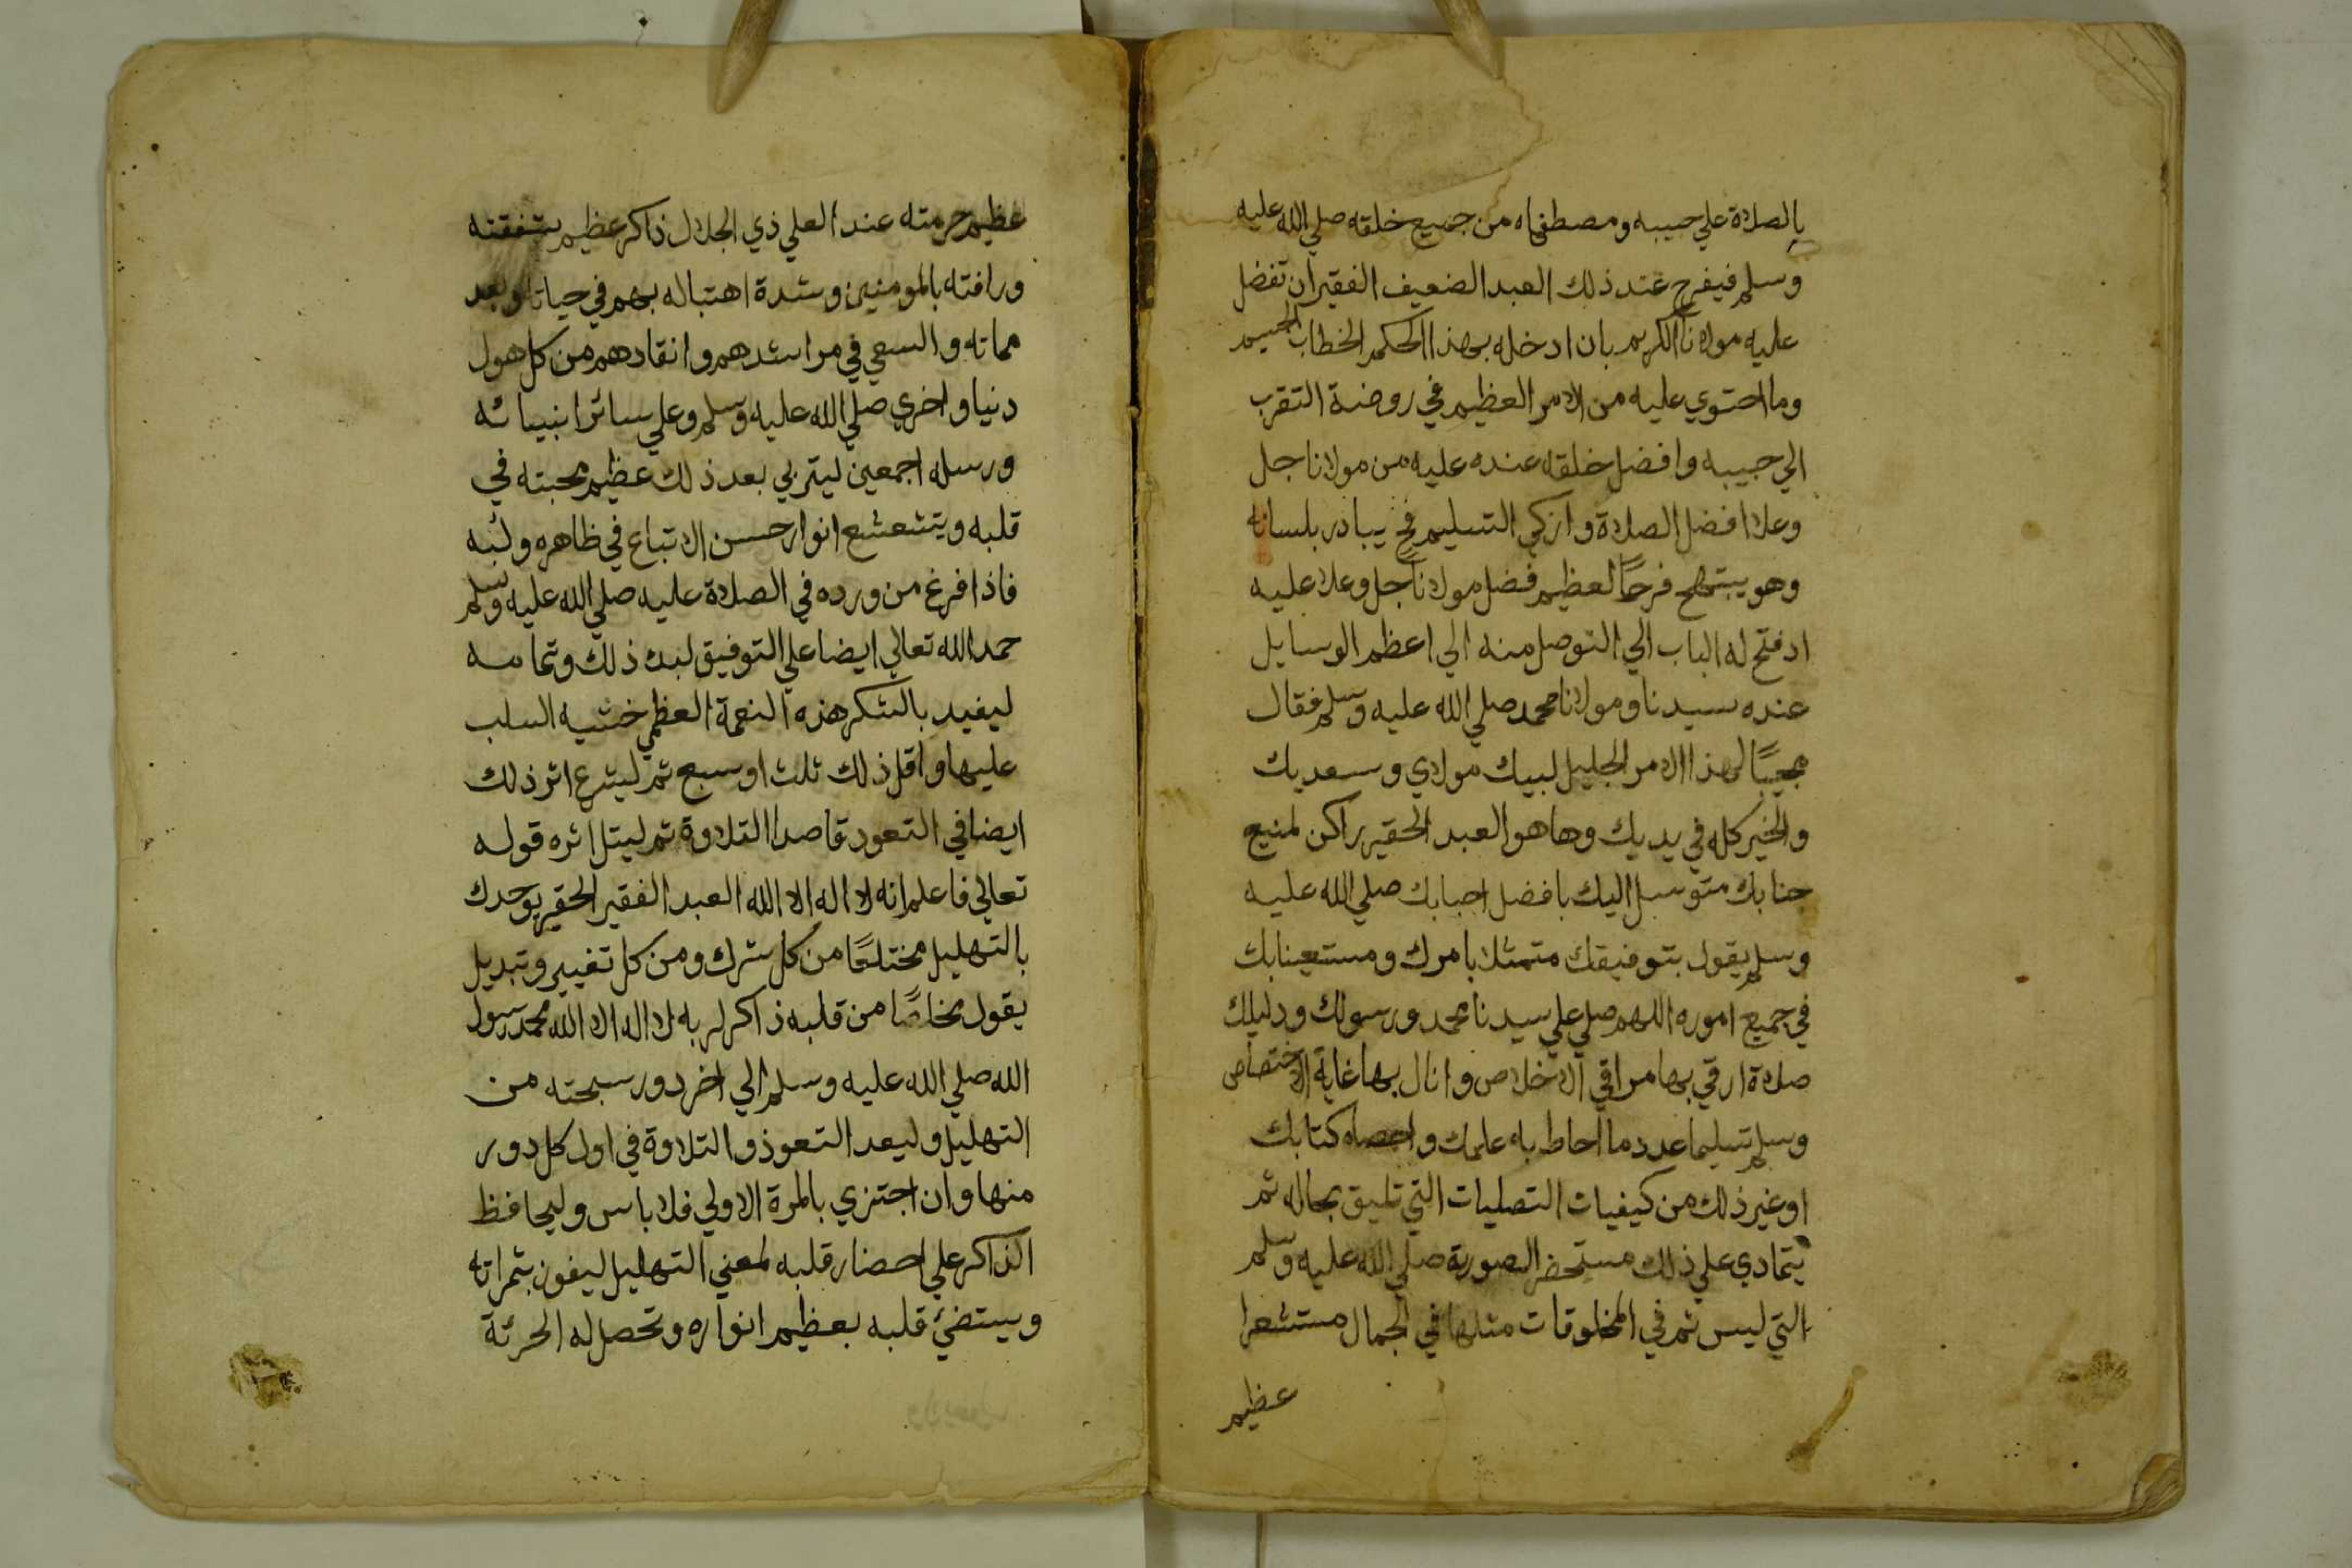 بالصلاة علي حبيبه ومصطفاه من جميع خلقه صلي الله عليه
وسلم فيفرح عند ذلك العبد الضعيف الفقير ان تفضل
عليه مولانا الكريم بان ادخله بهذا الحكم الخطاب الجسيم
وما احتوي عليه من الامر العظيم في روضة التقرب
الي حبيبه وافضل خلقه عنده عليه من مولانا جل
وعلا افضل الصلاة وازكي التسليم فح يبادر بلسانه
وهو يبتهج فرحًا لعظيم فضل مولانا جل وعلا عليه
اذ فتح له الباب الي التوصل منه الي اعظم الوسايل
عنده سيدنا ومولانا محمد صلي الله عليه وسلم فقال
مجيبًا لهذا الامر الجليل لبيك مولاي وسعديك
والخير كله في يديك وها هو العبد الحقير راكن لمنيع
جنابك متوسل اليك بافضل احبابك صلي الله عليه
وسلم يقول بتوفيقك متمثلا بامرك ومستعينا بك
في جميع اموره اللهم صلي علي سيدنا محمد ورسولك ودليلك
صلاة ارقي بها مراقي الاخلاص وانال بها غاية الاختصاص
وسلم تسليما عدد ما احاط به علمك واحصاه كتابك
او غير ذلك من كيفيات التصليات التي تليق بحاله ثم
يتمادي علي ذلك مستحضر الصورية صلي الله عليه وسلم
التي ليس ثم في المخلوقات مثلها في الجمال مستشعرا
عظيم
عظيم حرمته عند العلي ذي الجلال ذاكر عظيم بشفقته
ورافته بالمومنين وشدة اهتباله بهم في حياته وبعد
مماته والسعي في مراشدهم وانقادهم من كل هول
دنيا واخري صلي الله عليه وسلم وعلي سائر انبيائه
ورسله اجمعين ليتربي بعد ذلك عظيم محبته في
قلبه ويتشعشع انوار حسن الاتباع في ظاهره ولبه
فاذا فرغ من ورده في الصلاة عليه صلي الله عليه وسلم
حمد الله تعالي ايضا علي التوفيق لبدء ذلك وتمامه
ليفيد بالشكر هذه النعمة العظمي خشيه السلب
عليها واقل ذلك ثلث او سبع ثم ليشرع اثر ذلك
ايضا في التعود قاصدا التلاوة ثم ليتل اثره قوله
تعالي فاعلم انه لا اله الا الله العبد الفقير الحقير يوحدك
بالتهليل مختلعًا من كل شرك ومن كل تغيير وتبديل
يقول مخلصًا من قلبه ذاكر لربه لا اله الا الله محمد رسول
الله صلي الله عليه وسلم الي اخر دور سبحته من
التهليل وليعد التعوذ والتلاوة في اول كل دور
منها وان اجتزي بالمرة الاولي فلا باس وليحافظ
الذاكر علي احضار قلبه لمعني التهليل ليفوز بثمراته
ويستضيء قلبه بعظيم انواره وتحصل له الحرثة